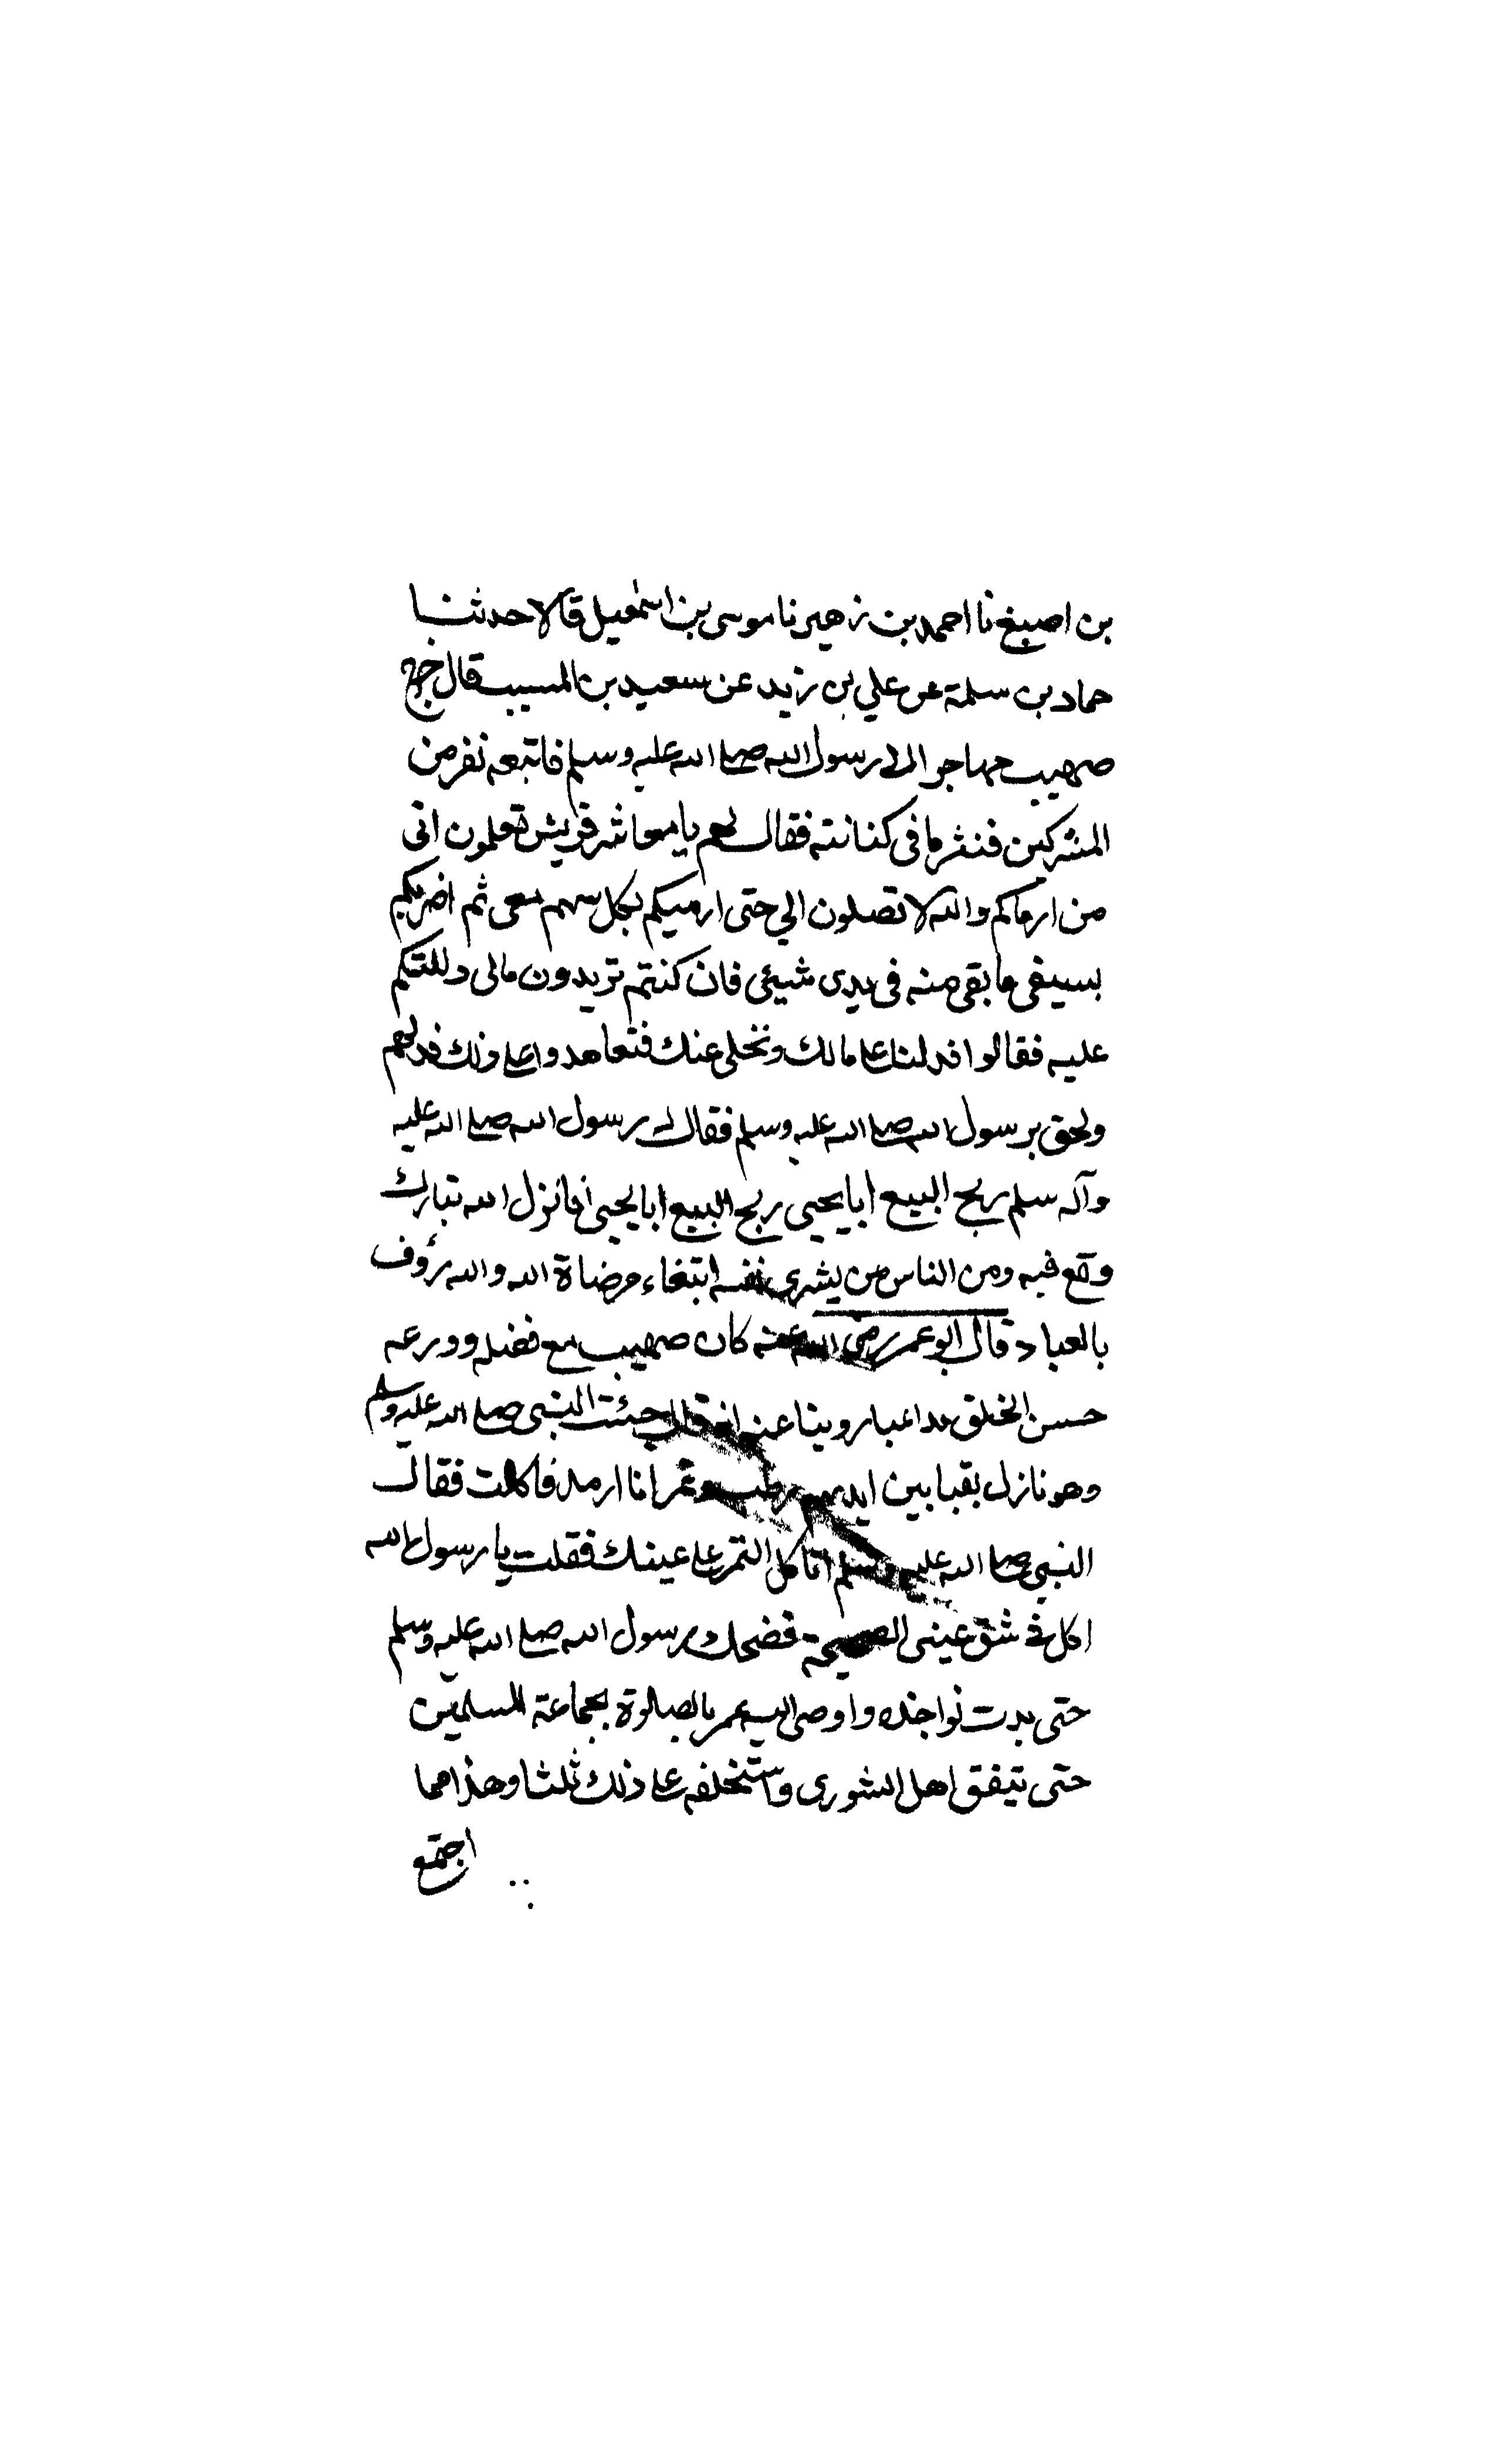 بن اصبغ نا احمد بن زهير نا موسى بن اسمعيل قالا حدثنا
حماد بن سلمة عن علي بن زيد عن سعيد بن المسيب قال خرج
صهيب مهاجرا الى رسول الله صلى الله عليه وسلم فاتبعه نفر من
المشركين فنثر ما فى كنانته فقال لهم يا معاشر قريش تعلمون انى
من ارماكم والله لا تصلون الي حتى ارميكم بكل سهم معى ثم اضربكم
بسيفى ما بقى منه فى يدى شيئى فان كنتم تريدون مالى دللتكم
عليه فقالوا فدلنا على مالك ونخلى عنك فتعاهدوا على ذلك فدلهم
ولحق برسول الله صلى الله عليه وسلم فقال له رسول الله صلى الله عليه
وآله سلم ربح البيع ابا يحيى ربح البيع ابا يحيى فانزل الله تبارك
وتع فيه ومن الناس من يشرى نفسه ابتغاء مرضاة الله والله رؤف
بالعباد قال ابو عمر رضى الله عنه كان صهيب مع فضله وورعه
حسن الخلق مداعبا روينا عنه انه قال جئت النبى صلى الله عليه وسلم
وهو نازل بقبا بين ايديهم رطب وتمر انا ارمد فاكلت فقال
النبي صلى الله عليه وسلم اتاكل التمر على عينك فقلت يا رسول الله
اكل فى شق عينى الصحيحة فضحك رسول الله صلى الله عليه وسلم
حتى بدت نواجذه واوصى اليه عمر بالصلوة بجماعة المسلمين
حتى يتفق اهل الشورى واستخلفه على ذلك ثلثا وهذا مما
اجتمع